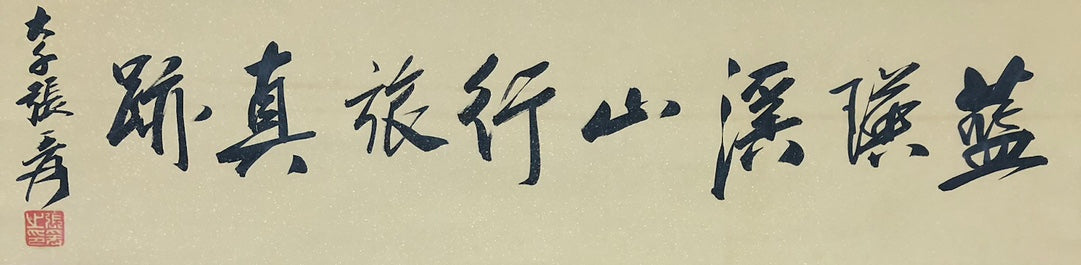 藍瑛溪山行旅真跡
大千張爰
張爰之印